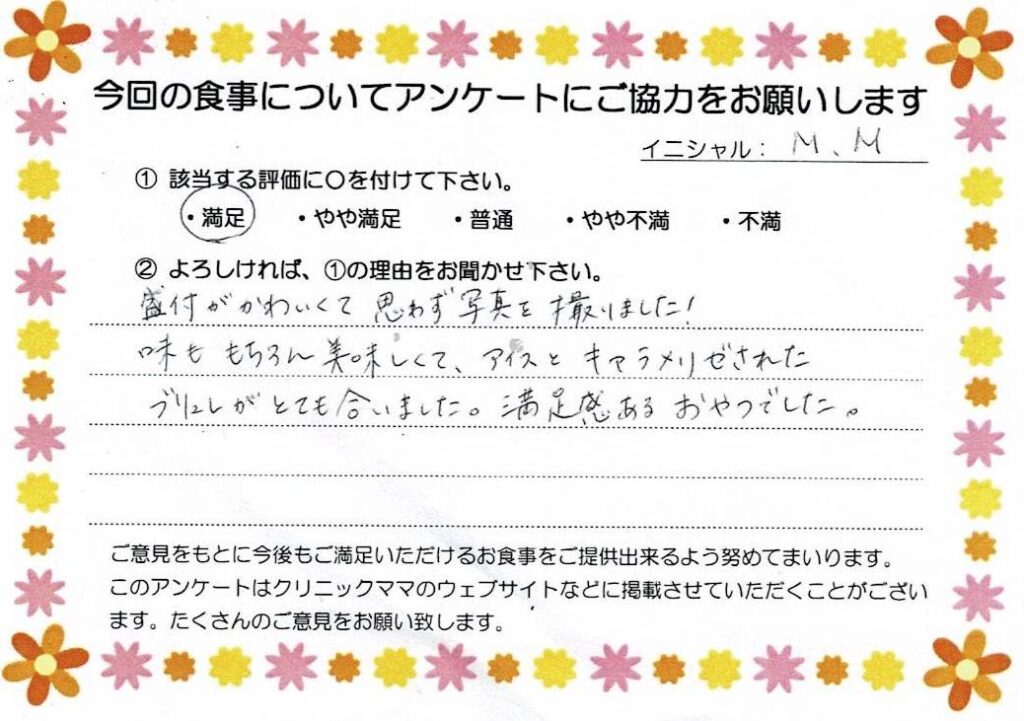 今回の食事についてアンケートにご協力をお願いします
イニシャル： M、M
① 該当する評価に〇を付けて下さい。
・満足 ・やや満足 ・普通 ・やや不満 ・不満
② よろしければ、①の理由をお聞かせ下さい。
盛付がかわいくて 思わず写真を撮りました！
味も もちろん 美味しくて、アイスと キャラメリゼされた
ブリュレがとても合いました。満足感ある おやつでした。
ご意見をもとに今後もご満足いただけるお食事をご提供出来るよう努めてまいります。
このアンケートはクリニックママのウェブサイトなどに掲載させていただくことがござい
ます。たくさんのご意見をお願い致します。